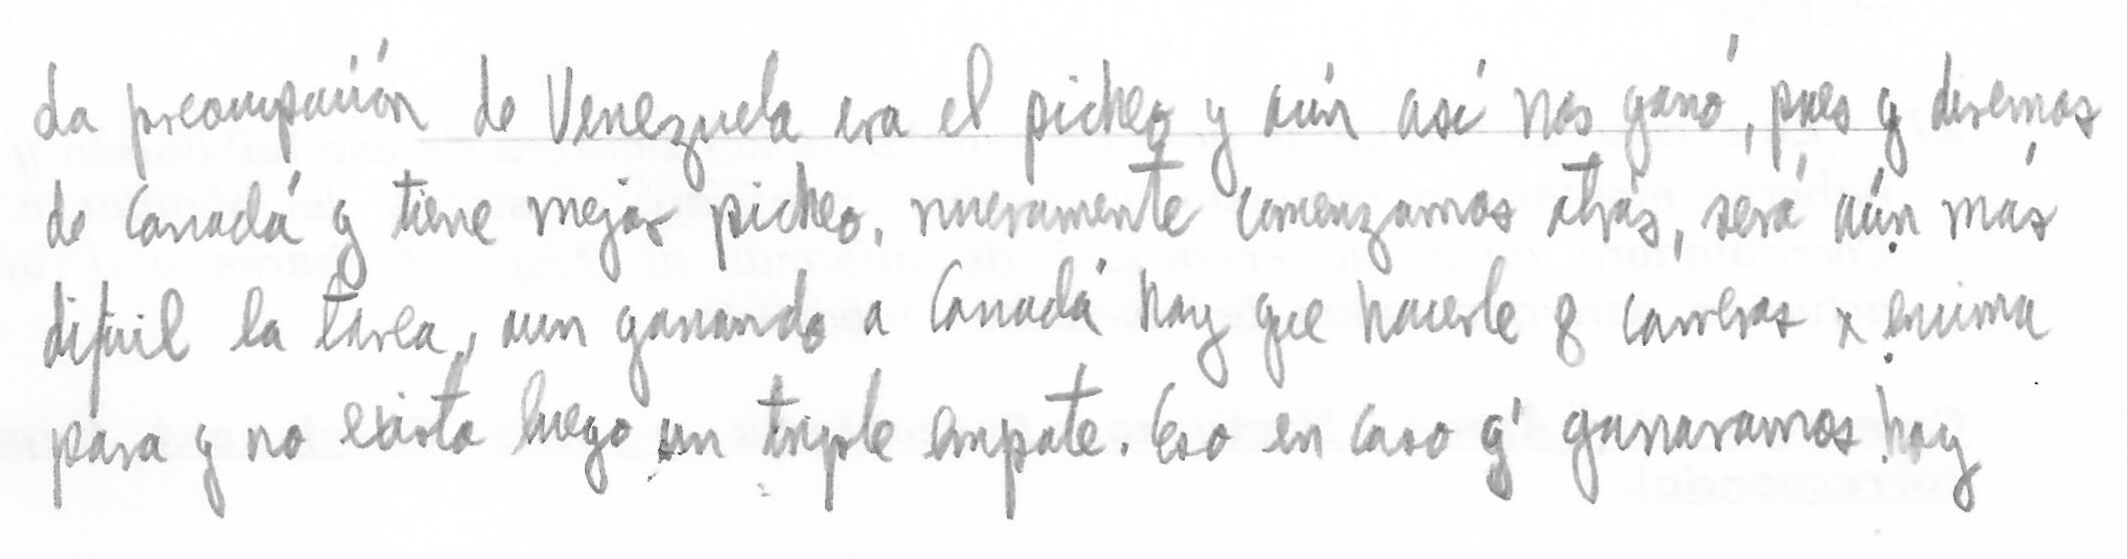 La preocupación de Venezuela era el picheo y aún así nos ganó, pues q diremos
de Canadá q tiene mejor picheo, nuevamente comenzamos atrás, será aún más
difícil la tarea, aun ganando a Canadá hay que hacerle 8 carreras x encima
para q no exista luego un triple empate. Eso en caso q' ganaramos hoy